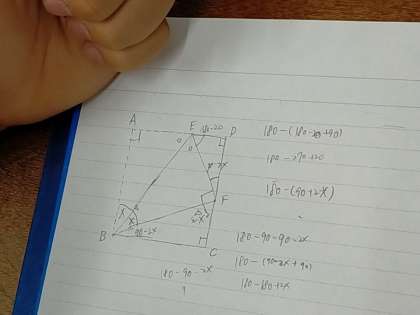 A
E
180-20
D
180-(180-20+90)
180-270+20
2x
180-(90+2x)
F
x
x
B
90-2x
C
180-90-90-2x
180-(90-2x+90)
180-90-2x
180-180+2x